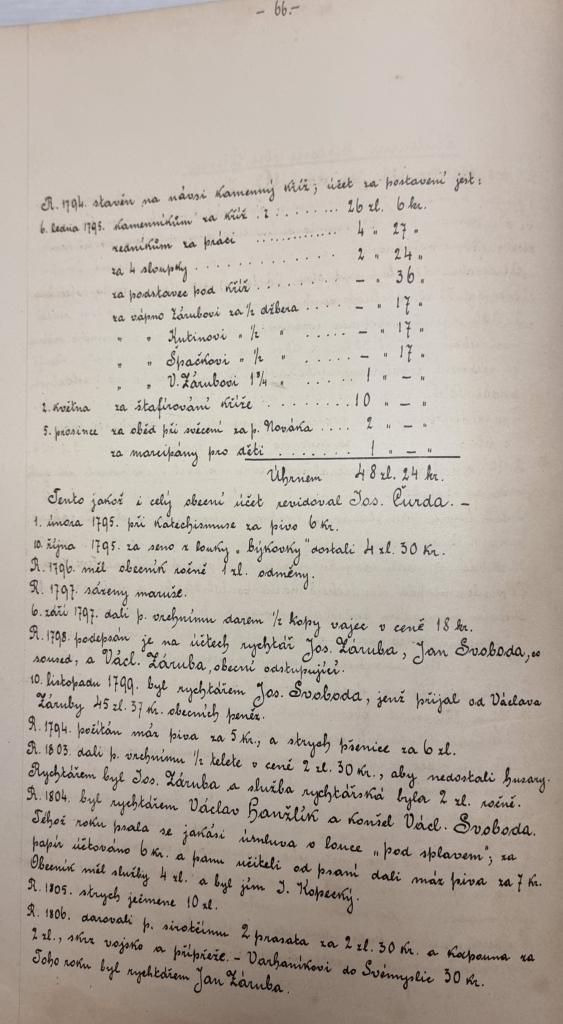 - 66.-
R. 1794. stavěn na návsi kamenný kříž; účet za postavení jest:
6. ledna 1795. kamenníkům za kříž . . . . . . . 26 zl. 6 kr.
zedníkům za práci . . . . . . . . . . 4 " 27 "
za 4 sloupky . . . . . . . . . . . 2 " 24 "
za podstavec pod kříž . . . . . . . . - " 36 "
za vápno Zárubovi za 1/2 džbera . . . . - " 17 "
" " Kutinovi " 1/2 " . . . . . - " 17 "
" " Špačkovi " 1/2 " . . . . . - " 17 "
" " V. Zárubovi 1 3/4 " . . . . . 1 " - "
2. května za štafírování kříže . . . . . . . 10 " - "
5. prosince za oběd při svěcení za p. Nováka . . 2 " - "
za marcipány pro děti . . . . . . . . 1 " - "
Úhrnem 48 zl. 24 kr.
Tento jakož i celý obecní účet revidoval Jos. Čurda. -
1. února 1795. při katechismuse za pivo 6 kr.
10. října 1795. za seno z louky „býkovky" dostali 4 zl. 30 kr.
R. 1796. měl obecník ročně 1 zl. odměny.
R. 1797. sázeny maruše.
6. září 1797. dali p. vrchnímu darem 1/2 kopy vajec v ceně 18 kr.
R. 1798. podepsán je na účtech rychtář Jos. Záruba, Jan Svoboda, co
soused, a Václ. Záruba, obecní odstupující.
10. listopadu 1799. byl rychtářem Jos. Svoboda, jenž přijal od Václava
Záruby 45 zl. 37 kr. obecních peněz.
R. 1794. počítán máz piva za 5 kr., a strych pšenice za 6 zl.
R. 1803. dali p. vrchnímu 1/2 telete v ceně 2 zl. 30 kr., aby nedostali husary.
Rychtářem byl Jos. Záruba a služba rychtářská byla 2 zl. ročně.
R. 1804. byl rychtářem Václav Hanžlík a konšel Václ. Svoboda.
Téhož roku psala se jakási úmluva o louce „pod splavem"; za
papír účtováno 6 kr. a panu učiteli od psaní dali máz piva za 7 kr.
Obecník měl služby 4 zl. a byl jím J. Kopecký.
R. 1805. strych ječmene 10 zl.
R. 1806. darovali p. sirotčímu 2 prasata za 2 zl. 30 kr. a kapouna za
2 zl., skrz vojsko a přípřeže. - Varhaníkovi do Svémyslic 30 kr.
Toho roku byl rychtářem Jan Záruba.